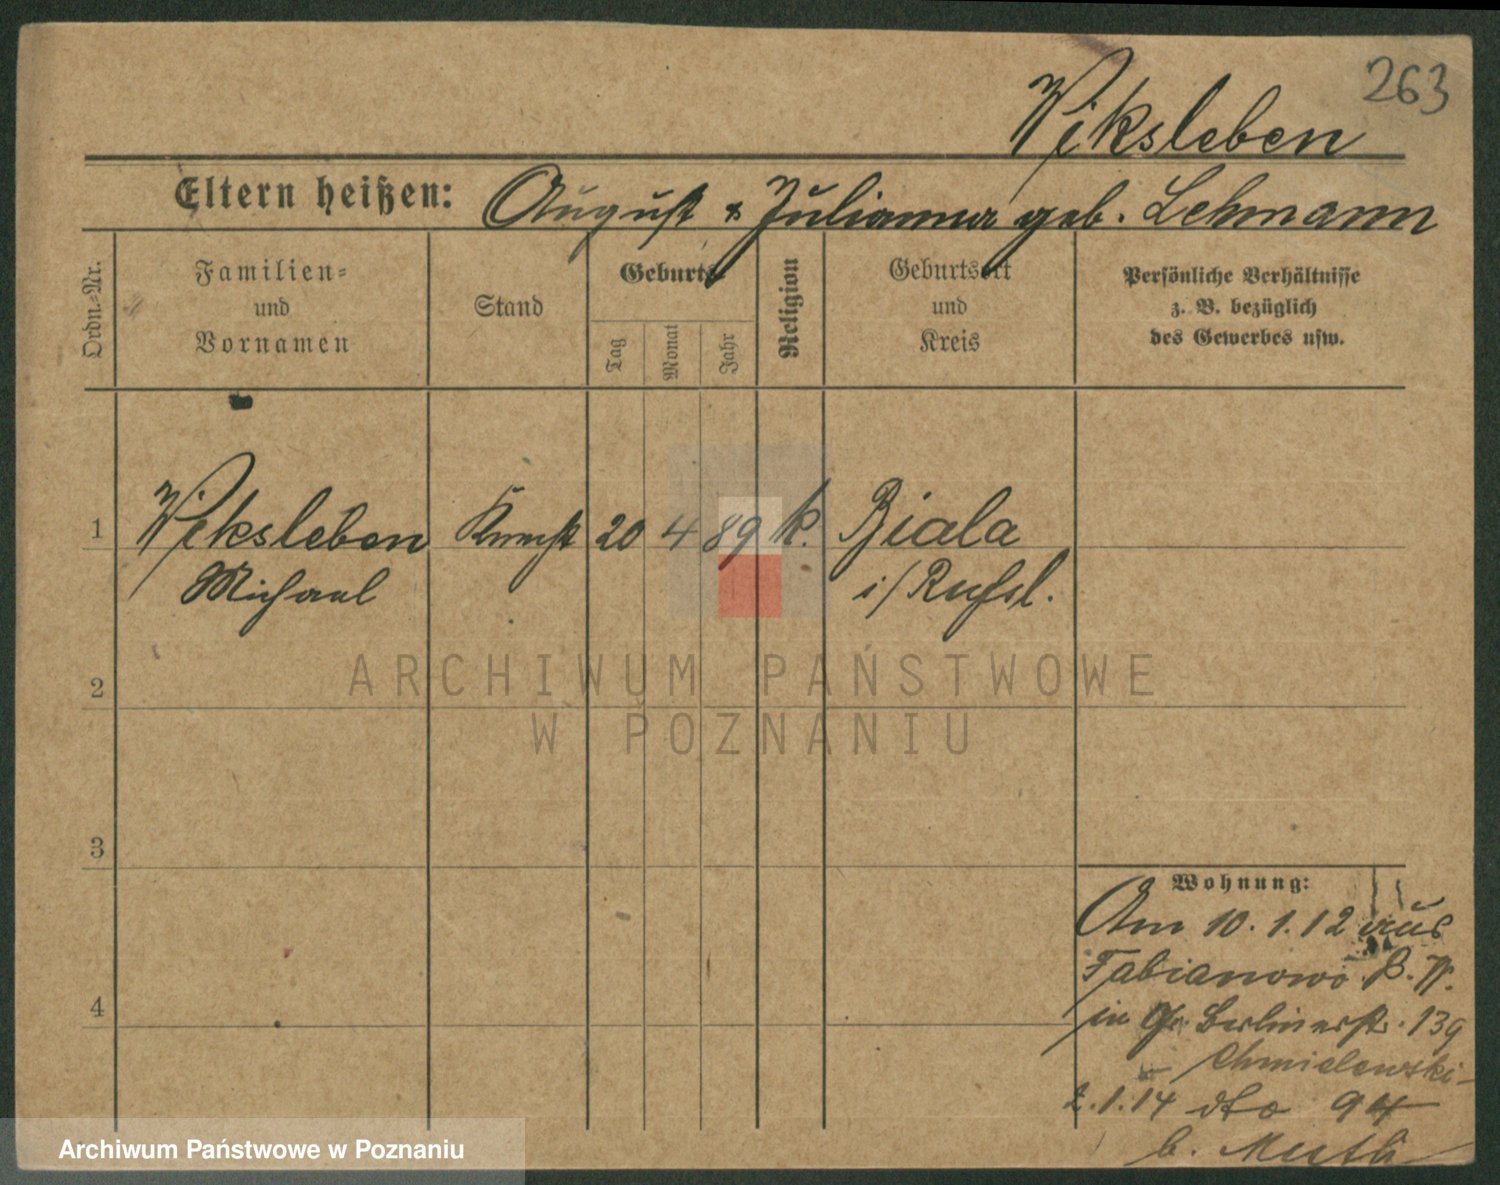 263
Wiksleben
Eltern heißen: August & Julianna geb. Lehmann
Ordn.=Nr.
Familien=
und
Vornamen
Stand
Geburts=
Tag
Monat
Jahr
Religion
Geburtsort
und
Kreis
Persönliche Verhältnisse
z. B. bezüglich
des Gewerbes usw.
1 Wiksleben Knecht 20 4 89 k. Biala
Michael i/Russl.
2
ARCHIWUM PAŃSTWOWE
W POZNANIU
3
Wohnung:
Am 10.1.12 aus
Fabianowo P. W.
4
in Gr. Berlinerstr. 139
Chmielewski
2.1.14 dto 94
b. Muth
Archiwum Państwowe w Poznaniu